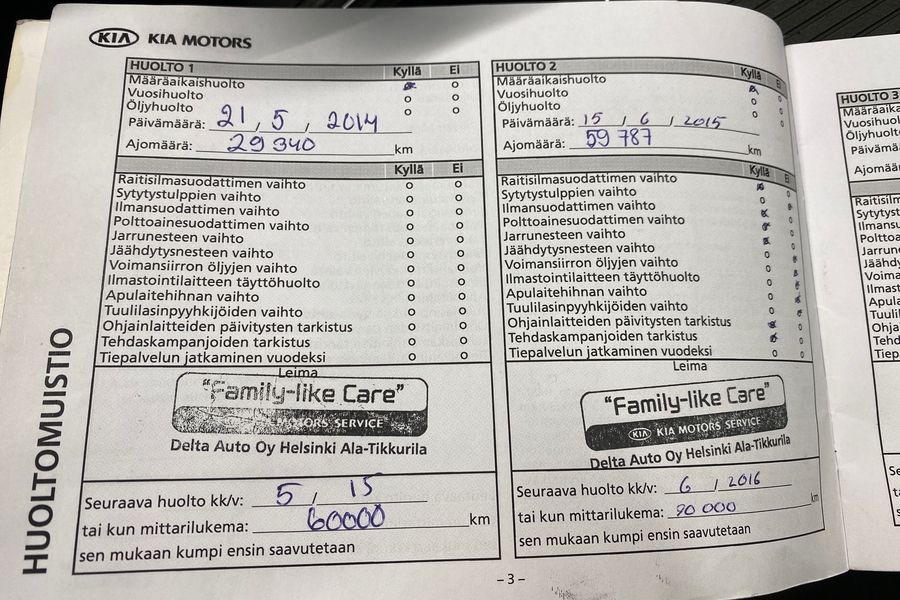 KIA KIA MOTORS
HUOLTO 1 Kyllä Ei
Määräaikaishuolto
Vuosihuolto
Öljyhuolto
Päivämäärä: 21 , 5 , 2014
Ajomäärä: 29 340 km
Kyllä Ei
Raitisilmasuodattimen vaihto
Sytytystulppien vaihto
Ilmansuodattimen vaihto
Polttoainesuodattimen vaihto
Jarrunesteen vaihto
Jäähdytysnesteen vaihto
Voimansiirron öljyjen vaihto
Ilmastointilaitteen täyttöhuolto
Apulaitehihnan vaihto
Tuulilasinpyyhkijöiden vaihto
Ohjainlaitteiden päivitysten tarkistus
Tehdaskampanjoiden tarkistus
Tiepalvelun jatkaminen vuodeksi
Leima
"Family-like Care"
MOTORS SERVICE
Delta Auto Oy Helsinki Ala-Tikkurila
Seuraava huolto kk/v: 5 / 15
tai kun mittarilukema: 60000 km
sen mukaan kumpi ensin saavutetaan
HUOLTO 2 Kyllä Ei
Määräaikaishuolto
Vuosihuolto
Öljyhuolto
Päivämäärä: 15 / 6 / 2015
Ajomäärä: 59 787 km
Kyllä Ei
Raitisilmasuodattimen vaihto
Sytytystulppien vaihto
Ilmansuodattimen vaihto
Polttoainesuodattimen vaihto
Jarrunesteen vaihto
Jäähdytysnesteen vaihto
Voimansiirron öljyjen vaihto
Ilmastointilaitteen täyttöhuolto
Apulaitehihnan vaihto
Tuulilasinpyyhkijöiden vaihto
Ohjainlaitteiden päivitysten tarkistus
Tehdaskampanjoiden tarkistus
Tiepalvelun jatkaminen vuodeksi
Leima
"Family-like Care"
KIA KIA MOTORS SERVICE
Delta Auto Oy Helsinki Ala-Tikkurila
Seuraava huolto kk/v: 6 / 2016
tai kun mittarilukema: 90 000 km
sen mukaan kumpi ensin saavutetaan
HUOLTOMUISTIO
- 3 -
HUOLTO 3
Määräaika
Vuosihuol
Öljyhuolto
Päivämää
Ajomäärä
Raitisilm
Sytytyst
Ilmansu
Polttoa
Jarrune
Jäähdy
Voima
Ilmast
Apula
Tuulil
Ohja
Tehd
Tiep